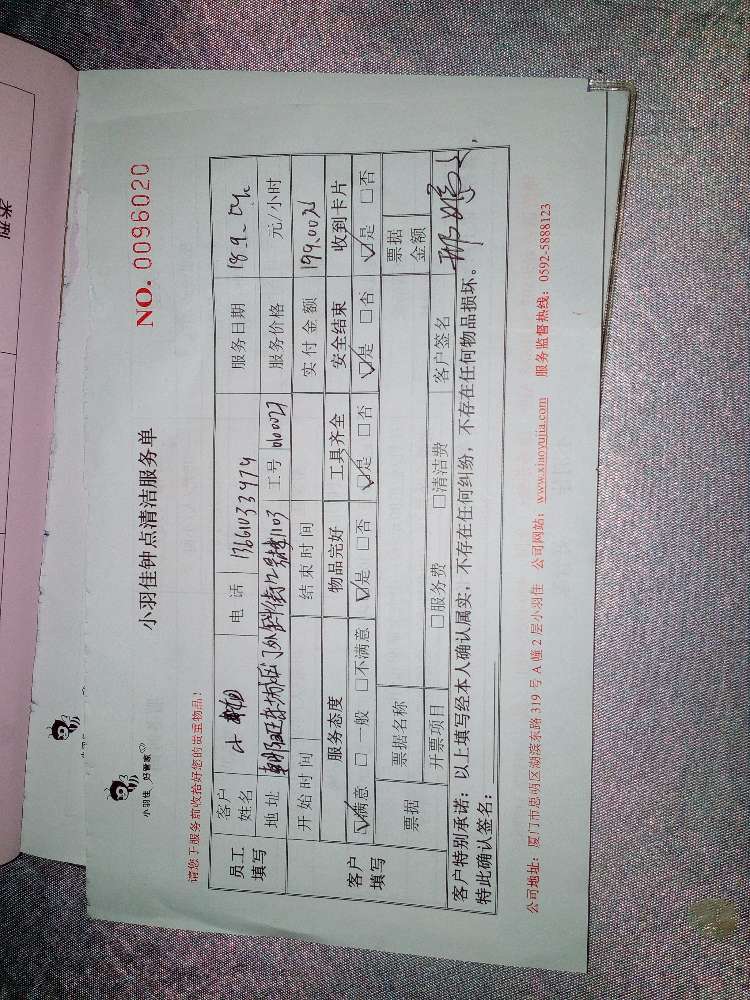 类型
小羽佳 好管家
小羽佳钟点清洁服务单
NO. 0096020
请您于服务前收拾好您的贵重物品！
员工填写
客户姓名
电话 13661033974
服务日期
地址
工号
服务价格 元/小时
开始时间
结束时间
实付金额 199.00元
客户填写
服务态度 物品完好 工具齐全 安全结束 收到卡片
☑满意 □一般 □不满意 ☑是 □否 ☑是 □否 ☑是 □否 ☑是 □否
票据
票据名称
票据金额
开票项目 □服务费 □清洁费
客户签名
客户特别承诺：以上填写经本人确认属实，不存在任何纠纷，不存在任何物品损坏。
特此确认签名：
公司地址：厦门市思明区湖滨东路 319 号 A 幢 2 层小羽佳 公司网站：www.xiaoyujia.com 服务监督热线：0592-5888123